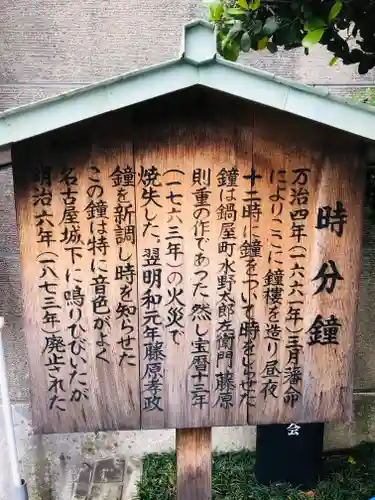 時分鐘
万治四年(一六六一年)三月藩命
によりここに鐘楼を造り昼夜
十二時に鐘をついて時を知らせた
鐘は鍋屋町水野太郎左衛門 藤原
則重の作であった。然し宝暦十三年
(一七六三年)の火災で
焼失した。翌明和元年藤原孝政
鐘を新調し時を知らせた
この鐘は特に音色がよく
名古屋城下に鳴りひびいたが
明治六年(一八七三年)廃止された
会